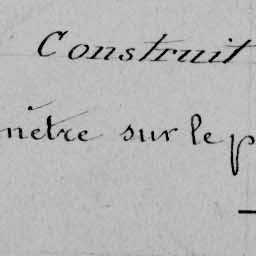 Construit
mètre sur le p